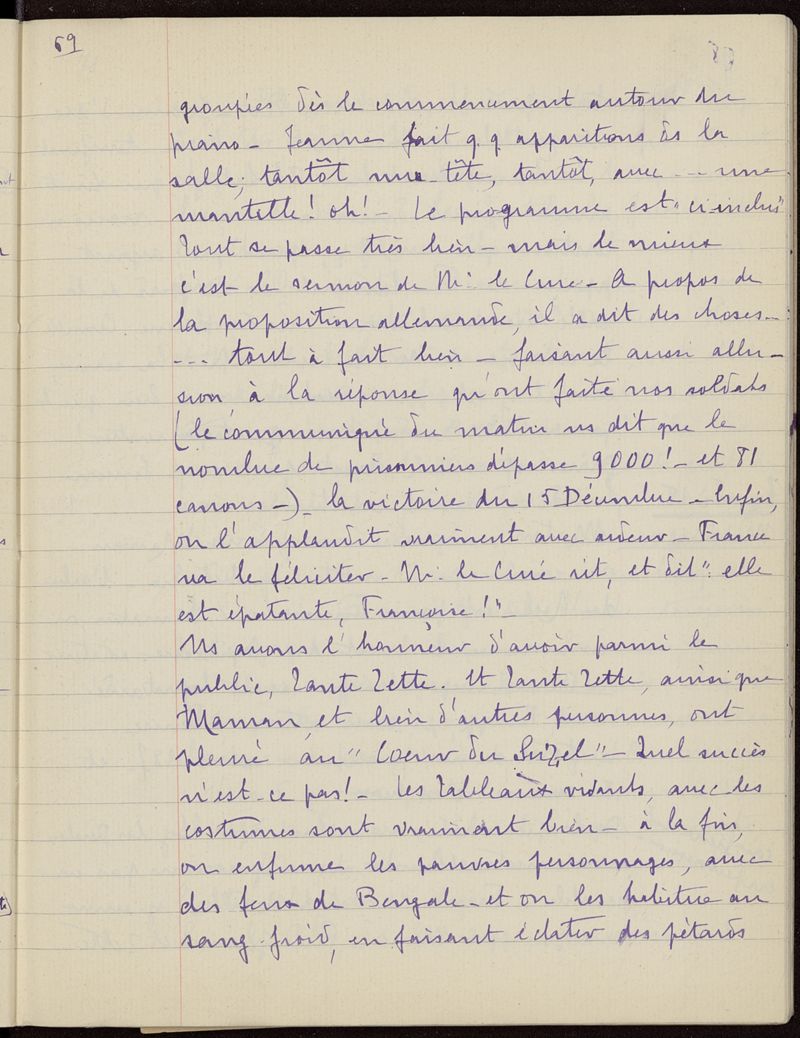 69
groupées dès le commencement autour du
piano - Jeanne fait q. q apparitions ds la
salle; tantôt nu-tête, tantôt, avec ... une
mantille! oh! - Le programme est "ci-inclus"
Tout se passe très bien - mais le mieux
c'est le sermon de Mr le Curé - A propos de
la proposition allemande, il a dit des choses -
... tout à fait bien - faisant aussi allu-
sion à la réponse qu'ont faite nos soldats
(le communiqué du matin ns dit que le
nombre de prisonniers dépasse 9000! - et 81
canons -) - la victoire du 15 Décembre - Enfin,
on l'applaudit vraiment avec ardeur - France
va le féliciter - Mr le Curé rit, et dit ": elle
est épatante, Françoise!" -
Ns avons l'honneur d'avoir parmi le
public, Tante Zette. Et Tante Zette, ainsi que
Maman, et bien d'autres personnes, ont
pleuré au "Coeur du Suzel" - Quel succès
n'est-ce pas! - Les Tableaux vivants, avec les
costumes sont vraiment bien - à la fin,
on enfume les pauvres personnages, avec
des feux de Bengale - et on les habitue au
sang-froid, en faisant éclater des pétards